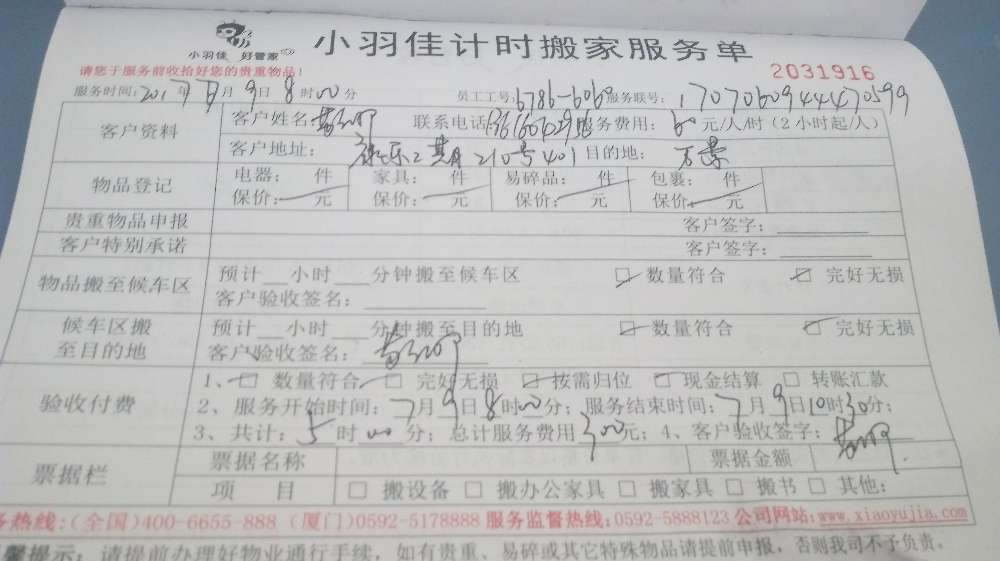 小羽佳 好管家
小羽佳计时搬家服务单
请您于服务前收拾好您的贵重物品!
2031916
服务时间:2017年7月9日8时00分 员工工号:6786-6060 服务联号:17070609444470599
客户资料 客户姓名: 联系电话 服务费用:60元/人/时(2小时起/人)
客户地址: 2期210号401 目的地:
物品登记 电器: 件 家具: 件 易碎品: 件 包裹: 件
保价: 元 保价: 元 保价: 元 保价: 元
贵重物品申报 客户签字:
客户特别承诺 客户签字:
物品搬至候车区 预计 小时 分钟搬至候车区 数量符合 完好无损
客户验收签名:
候车区搬至目的地 预计 小时 分钟搬至目的地 数量符合 完好无损
客户验收签名:
验收付费 1、 数量符合 完好无损 按需归位 现金结算 转账汇款
2、服务开始时间:7月9日8时00分;服务结束时间:7月9日10时30分;
3、共计:5时00分;总计服务费用300元;4、客户验收签字:
票据栏 票据名称 票据金额
项 目 搬设备 搬办公家具 搬家具 搬书 其他:
务热线:(全国)400-6655-888(厦门)0592-5178888 服务监督热线:0592-5888123 公司网站:www.xiaoyujia.com
馨提示:请提前办理好物业通行手续,如有贵重、易碎或其它特殊物品请提前申报,否则我司不予负责。